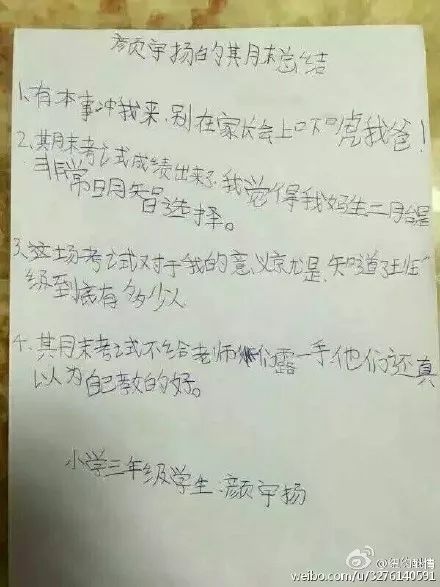 颜宇扬的其月末总结
1.有本事冲我来,别在家长会上口不口虎我爸!
2.其月末考试成绩出来了,我觉得我妈生二月台是
非常日月智选择。
3.这场考试对于我的意义京尤是,知道了班
级到底有多少人
4.其月末考试不给老师们露一手,他们还真
以为自己教的好。
小学三年级学生:颜宇扬
weibo.com/u/3276140591